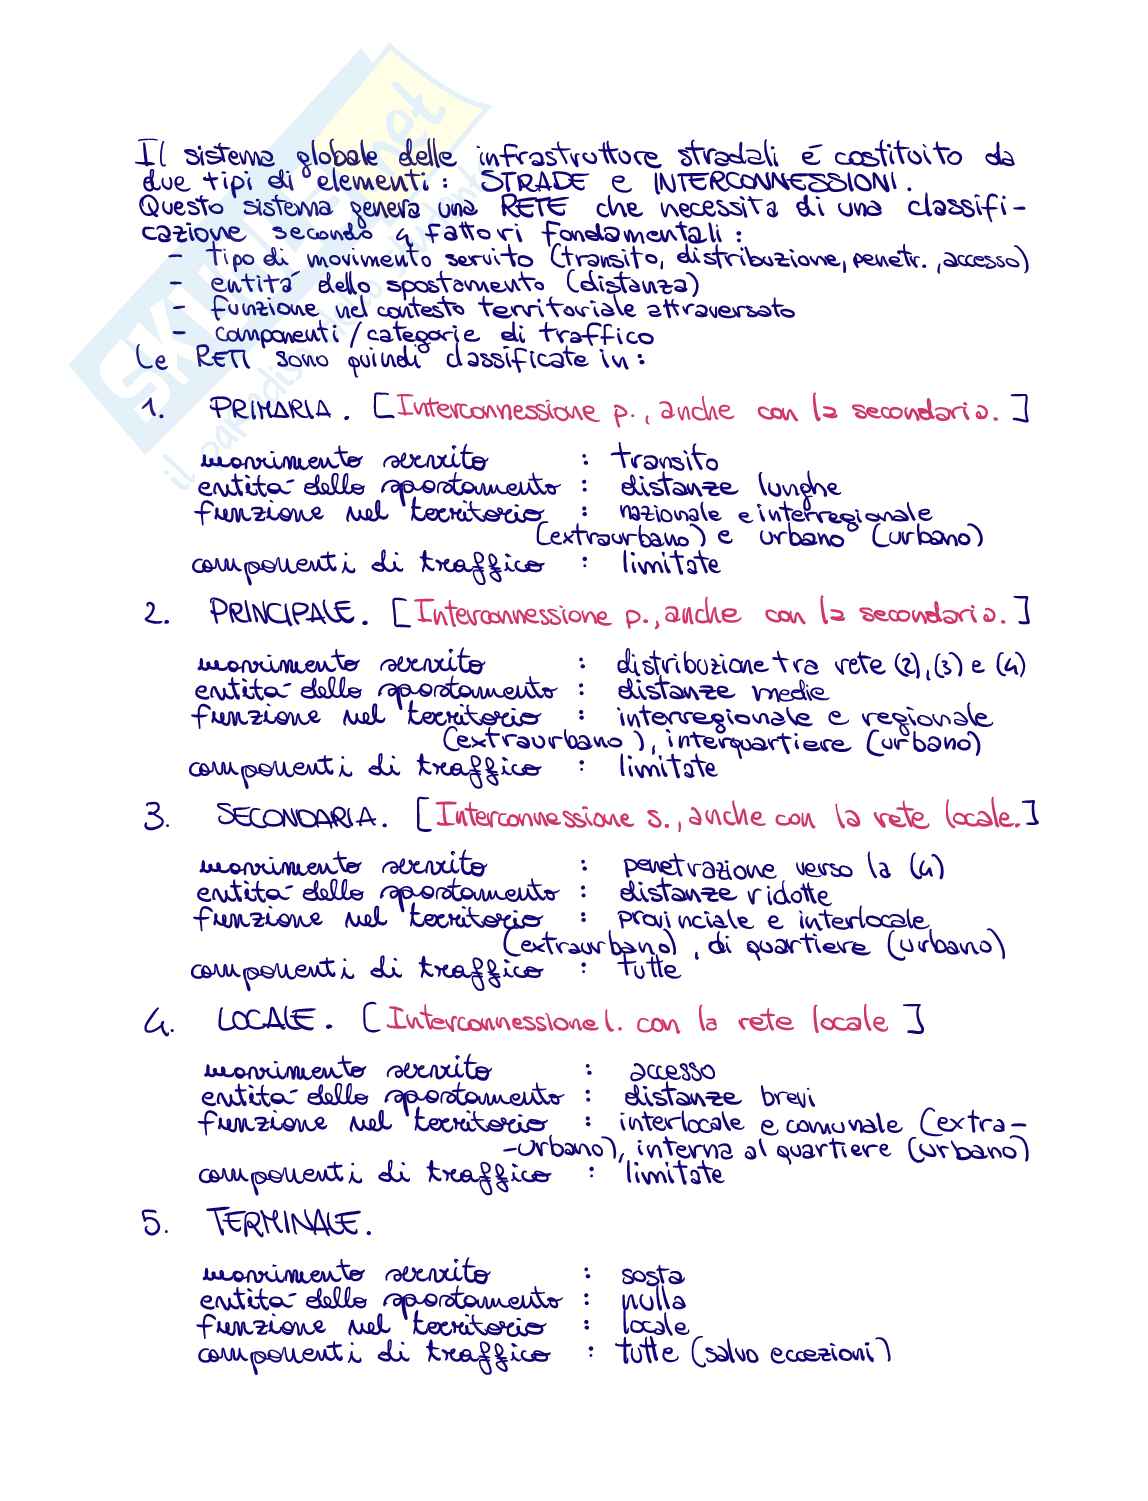 Il sistema globale delle infrastrutture stradali è costituito da
due tipi di elementi: STRADE e INTERCONNESSIONI.
Questo sistema genera una RETE che necessita di una classifi-
cazione secondo 4 fattori fondamentali:
- tipo di movimento servito (transito, distribuzione, penetr., accesso)
- entità dello spostamento (distanza)
- funzione nel contesto territoriale attraversato
- componenti/categorie di traffico
Le RETI sono quindi classificate in:
1. PRIMARIA. [Interconnessione p., anche con la secondaria.]
movimento servito : transito
entità dello spostamento : distanze lunghe
funzione nel territorio : nazionale e interregionale
(extraurbano) e urbano (urbano)
componenti di traffico : limitate
2. PRINCIPALE. [Interconnessione p., anche con la secondaria.]
movimento servito : distribuzione tra rete (2), (3) e (4)
entità dello spostamento : distanze medie
funzione nel territorio : interregionale e regionale
(extraurbano), interquartiere (urbano)
componenti di traffico : limitate
3. SECONDARIA. [Interconnessione s., anche con la rete locale.]
movimento servito : penetrazione verso la (4)
entità dello spostamento : distanze ridotte
funzione nel territorio : provinciale e interlocale
(extraurbano), di quartiere (urbano)
componenti di traffico : tutte
4. LOCALE. [Interconnessione l. con la rete locale]
movimento servito : accesso
entità dello spostamento : distanze brevi
funzione nel territorio : interlocale e comunale (extra-
-urbano), interna al quartiere (urbano)
componenti di traffico : limitate
5. TERMINALE.
movimento servito : sosta
entità dello spostamento : nulla
funzione nel territorio : locale
componenti di traffico : tutte (salvo eccezioni)